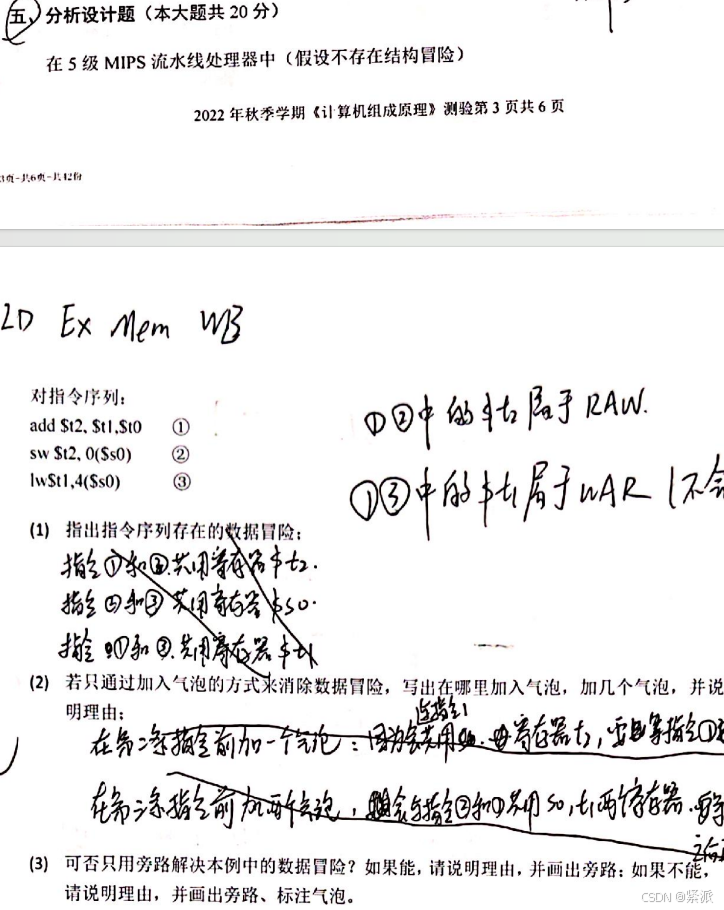 五、分析设计题（本大题共 20 分）
在 5 级 MIPS 流水线处理器中（假设不存在结构冒险）
2022 年秋季学期《计算机组成原理》测验第 3 页共 6 页
页-共6页-共12份
ID Ex Mem WB
对指令序列：
add $t2, $t1,$t0 ①
sw $t2, 0($s0) ②
lw$t1,4($s0) ③
①②中的$t2属于RAW.
①③中的$t1属于WAR (不会
(1) 指出指令序列存在的数据冒险；
指令①和②共用寄存器$t2.
指令②和③共用寄存器$s0.
指令①和③共用寄存器$t1
(2) 若只通过加入气泡的方式来消除数据冒险，写出在哪里加入气泡，加几个气泡，并说
明理由；
与指令1
在第二条指令前加一个气泡：因为会共用 寄存器t2，要 等指令①
在第三条指令前加两个气泡， 会与指令②和①共用s0，t1两个寄存器.
(3) 可否只用旁路解决本例中的数据冒险？如果能，请说明理由，并画出旁路；如果不能，
请说明理由，并画出旁路、标注气泡。
CSDN @紧派